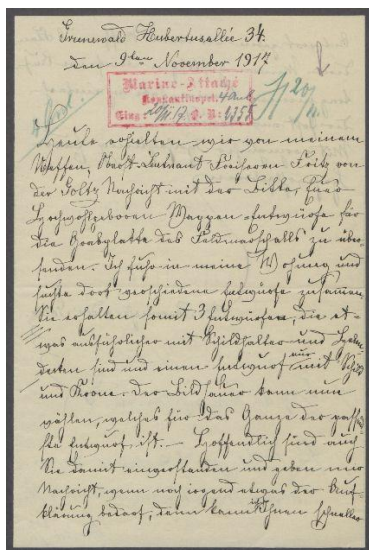 Grunewald Hubertusallée 34.
den 9ten November 1917
Marine-Attaché
Konstantinopel.
Eing.
Heute erhalten wir von meinem
Neffen, Oberst-Leutnant Freiherrn Fritz von
der Goltz Nachricht mit der Bitte, Euer
Hochwohlgeboren Wappen-Entwürfe für
die Grabplatte des Feldmarschalls zu über-
senden. Ich fuhr in meine Wohnung und
suchte dort verschiedene Entwürfe zusammen.
Sie erhalten somit 3 Entwürfe, die et-
was ausführlicher mit Schildhalter und Helm-
decken sind und einen Entwurf nur mit Schild
und Krone. Der Bildhauer kann nun
wählen, welches für das Ganze der passend-
ste Entwurf ist. — Hoffentlich sind auch
Sie damit einverstanden und geben mir
Nachricht, wenn noch irgend etwas der Auf-
klärung bedarf, denn kann Ihnen schneller